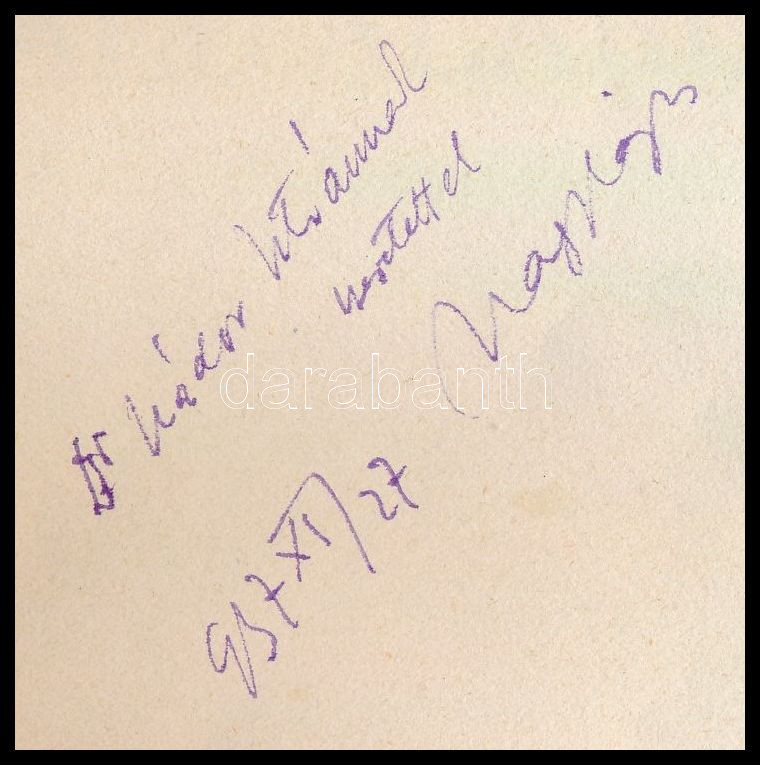 Dr Nádor Istvánnak
szeretettel
Nagy Lajos
937 XI/27
darabanth